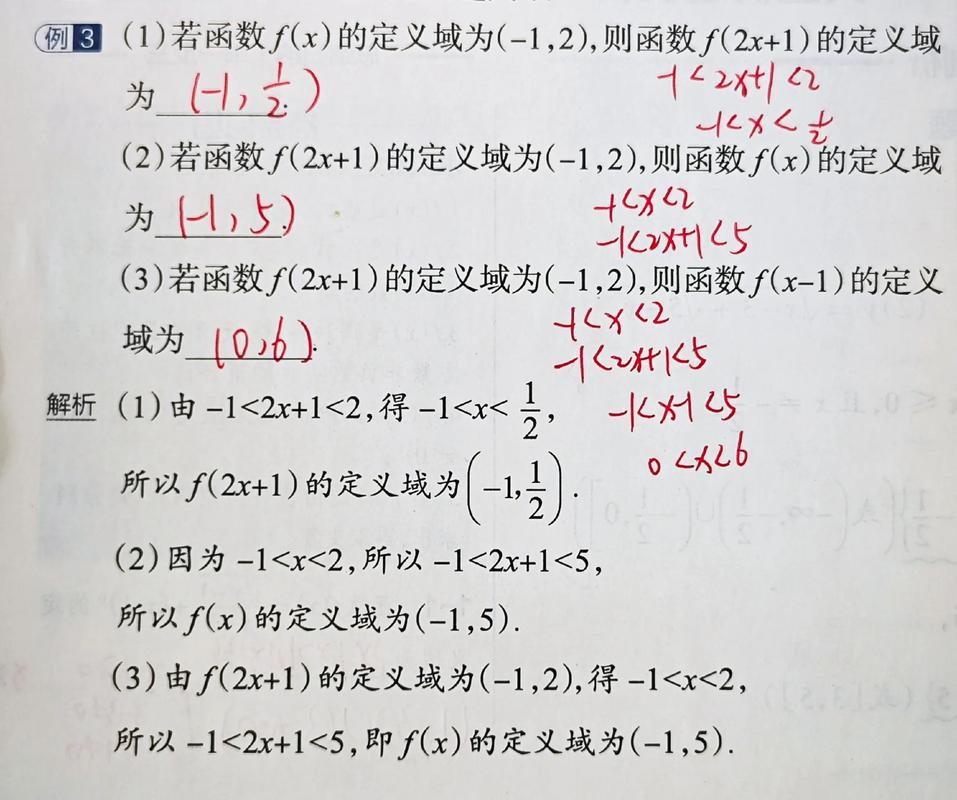 例3 (1)若函数f(x)的定义域为(-1,2),则函数f(2x+1)的定义域
-1<2x+1<2
为 (-1,1/2).
-1<x<1/2
(2)若函数f(2x+1)的定义域为(-1,2),则函数f(x)的定义域
-1<x<2
为 (-1,5).
-1<2x+1<5
(3)若函数f(2x+1)的定义域为(-1,2),则函数f(x-1)的定义
-1<x<2
域为 (0,6).
-1<2x+1<5
解析 (1)由 -1<2x+1<2,得 -1<x<1/2,
-1<x-1<5
0<x<6
所以f(2x+1)的定义域为(-1,1/2).
(2)因为 -1<x<2,所以 -1<2x+1<5,
所以f(x)的定义域为(-1,5).
(3)由f(2x+1)的定义域为(-1,2),得 -1<x<2,
所以 -1<2x+1<5,即f(x)的定义域为(-1,5).